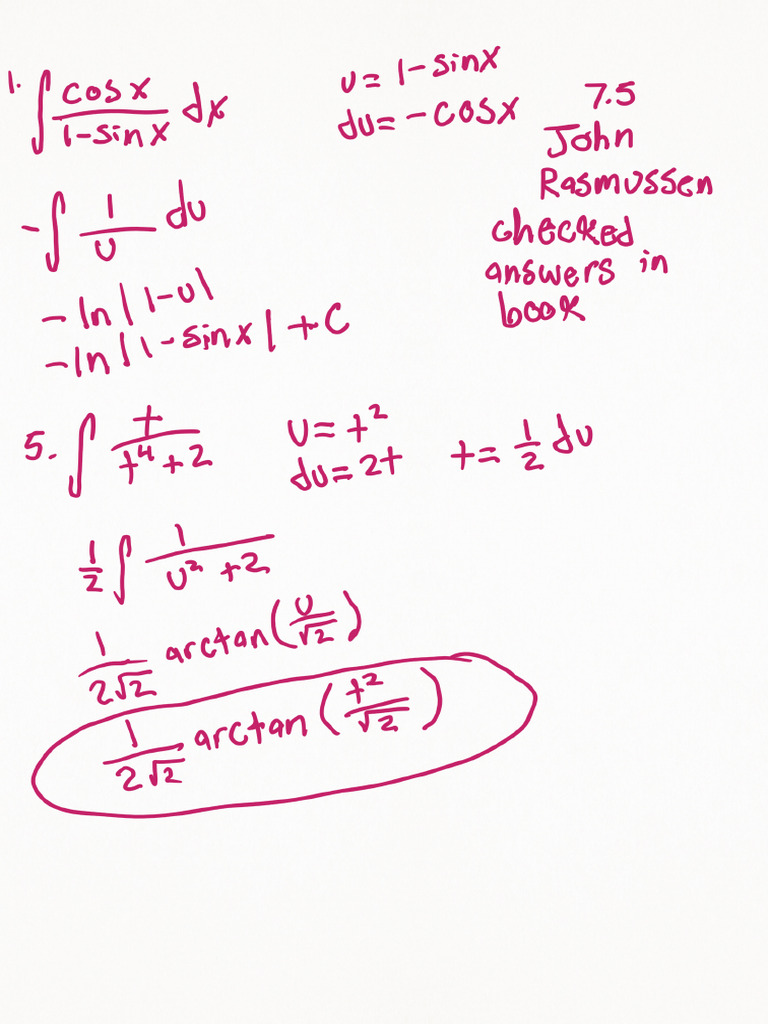 1. ∫ cosx / 1-sinx dx
u = 1-sinx
du = -cosx
7.5
John
Rasmussen
checked
answers in
book
-∫ 1/u du
-ln|1-u|
-ln|1-sinx| + C
5. ∫ t / t⁴+2
u = t²
du = 2t t = 1/2 du
1/2 ∫ 1 / u²+2
1/2√2 arctan(u/√2)
1/2√2 arctan(t²/√2)